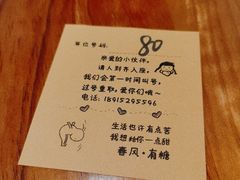 客位号码: 80
亲爱的小伙伴,
请人到齐入座,
我们会第一时间叫号,
过号重取,爱你们哦~
电话: 18915295596
生活也许有点苦
我想给你一点甜
春风·有糖